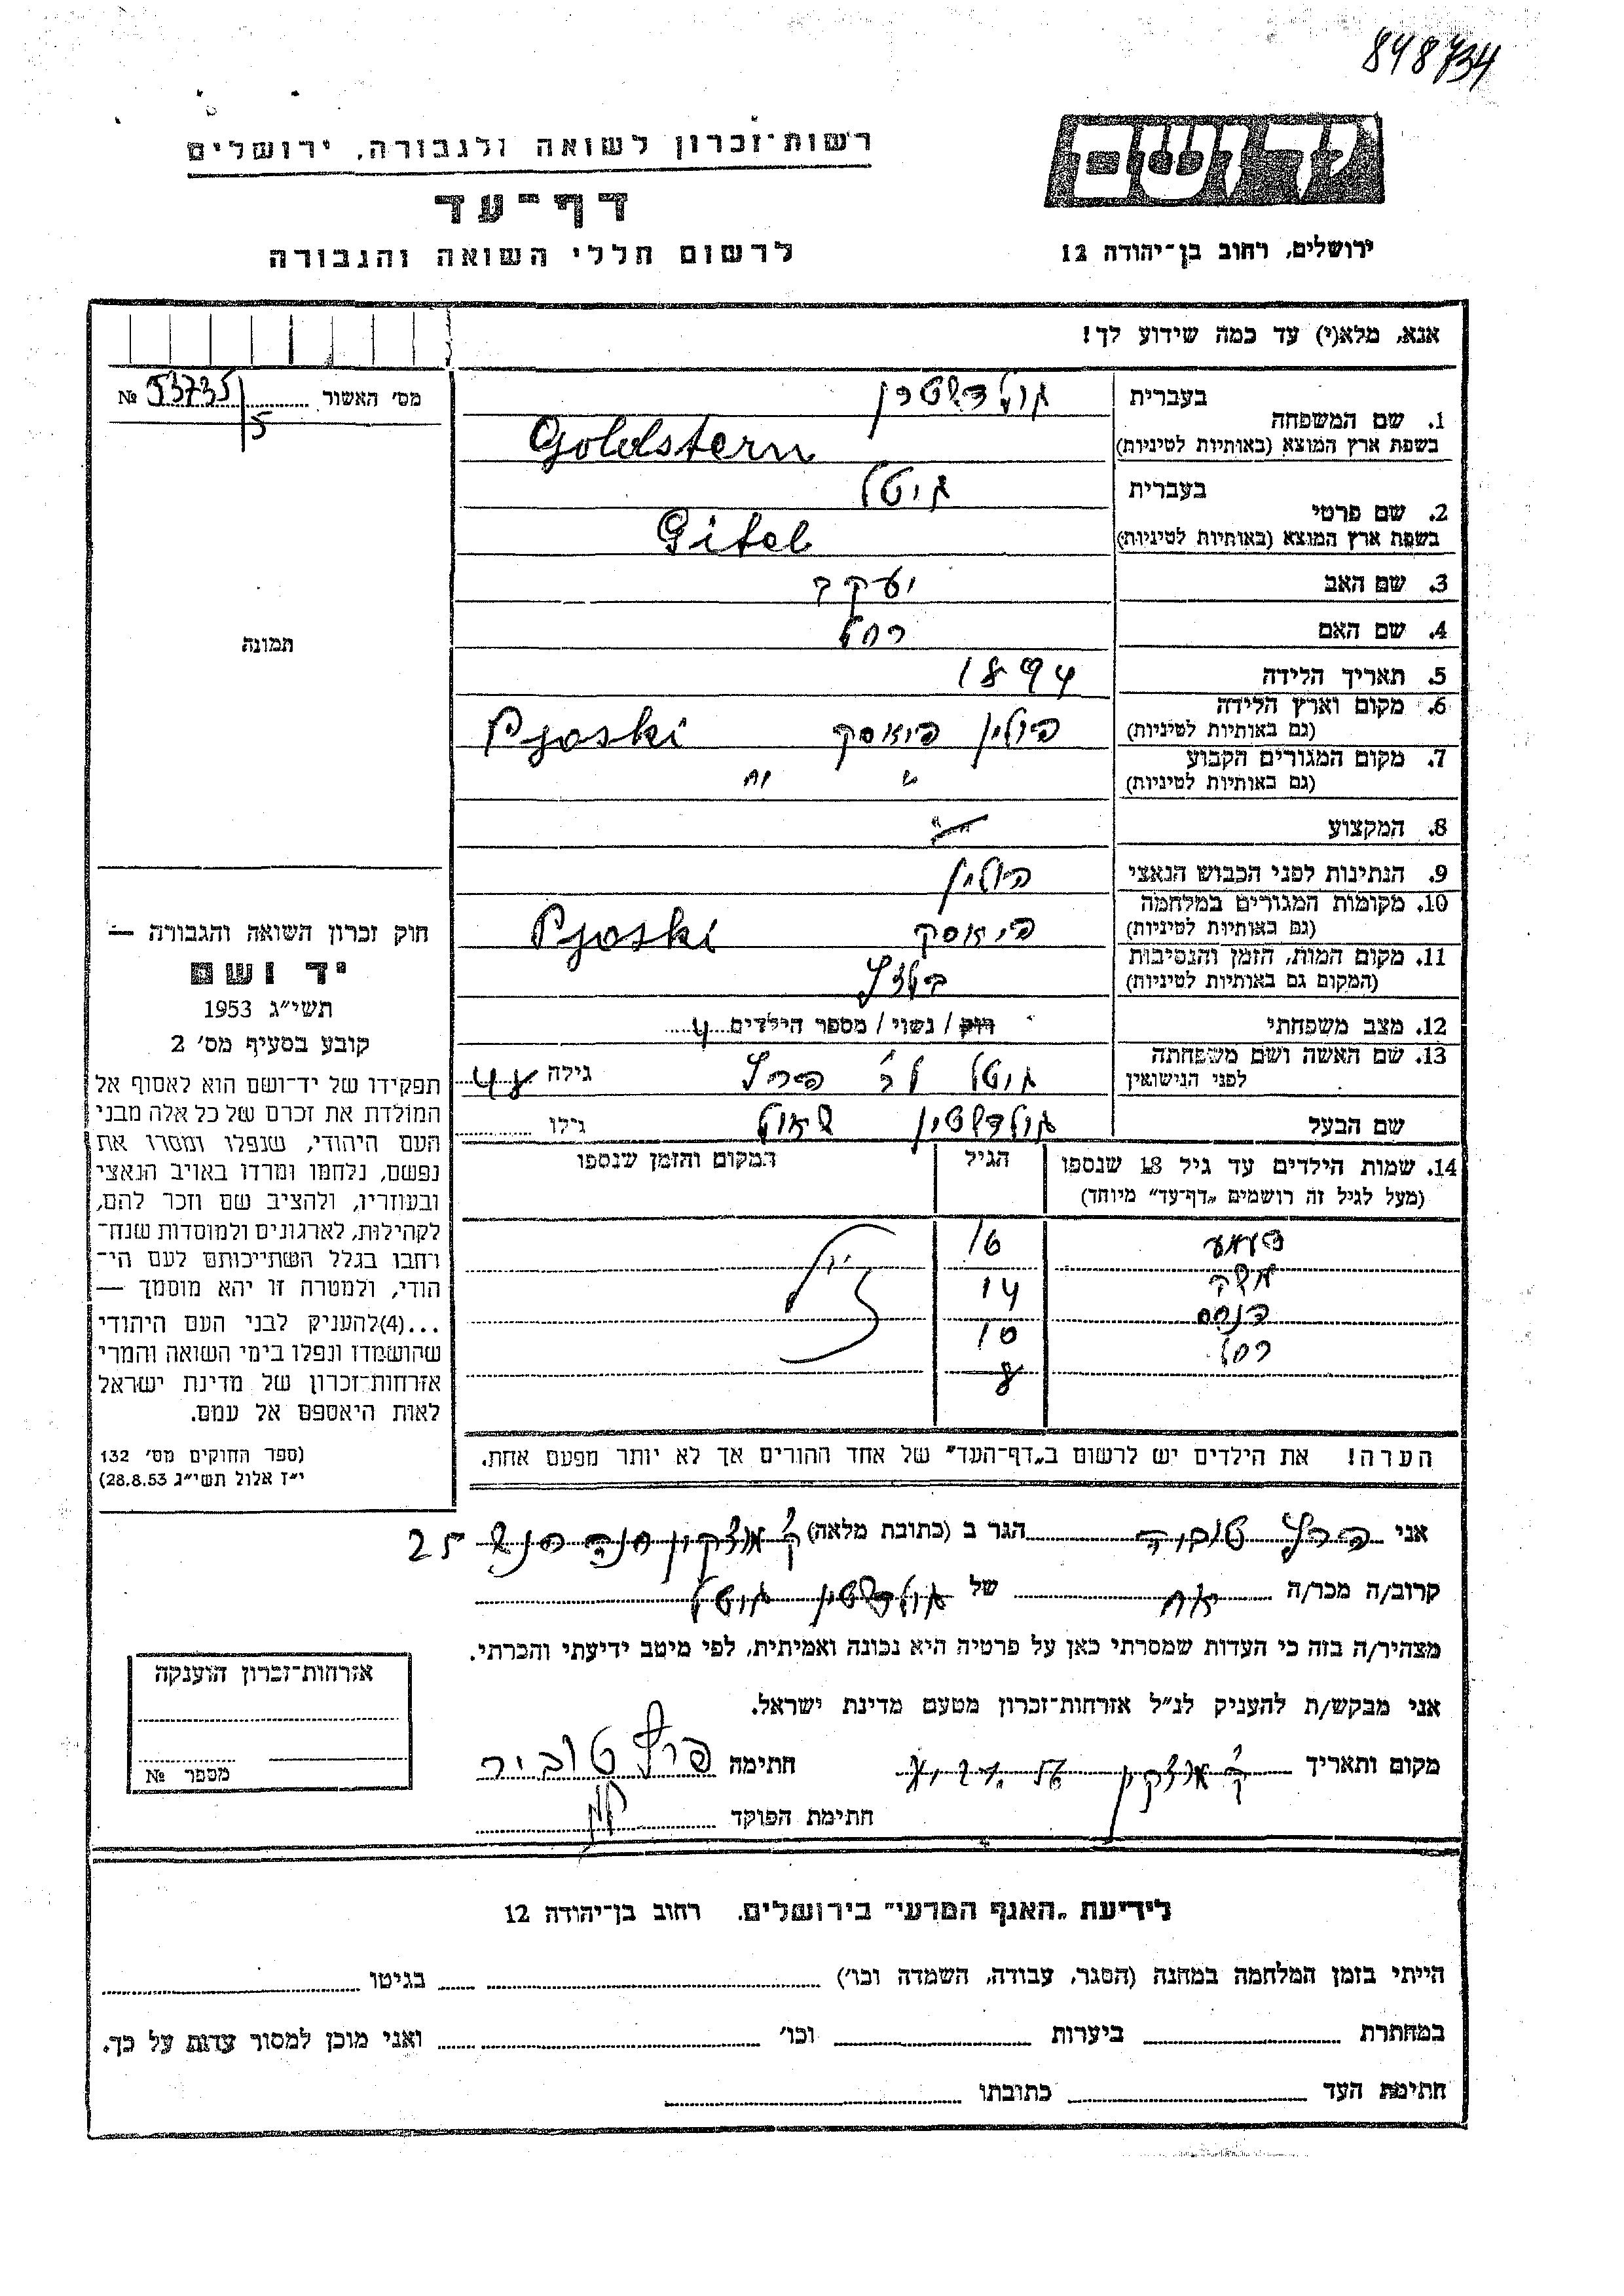 848734
רשות־זכרון לשואה ולגבורה, ירושלים
דף־עד
לרשום חללי השואה והגבורה
יד ושם
ירושלים, רחוב בן־יהודה 12
אנא, מלא(י) עד כמה שידוע לך!
מס׳ האשור № 53735/5
תמונה
חוק זכרון השואה והגבורה —
יד ושם
תשי״ג 1953
קובע בסעיף מס׳ 2
תפקידו של יד־ושם הוא לאסוף אל
המולדת את זכרם של כל אלה מבני
העם היהודי, שנפלו ומסרו את
נפשם, נלחמו ומרדו באויב הנאצי
ובעוזריו, ולהציב שם וזכר להם,
לקהילות, לארגונים ולמוסדות שנח־
רחבו בגלל השתייכותם לעם הי־
הודי, ולמטרה זו יהא מוסמך —
...(4)להעניק לבני העם היהודי
שהושמדו ונפלו בימי השואה והמרי
אזרחות־זכרון של מדינת ישראל
לאות היאספם אל עמם.
(ספר החוקים מס׳ 132
י״ז אלול תשי״ג 28.8.53)
1. שם המשפחה
בעברית גולדשטרן
בשפת ארץ המוצא (באותיות לטיניות) Goldstern
2. שם פרטי
בעברית גיטל
בשפת ארץ המוצא (באותיות לטיניות) Gitel
3. שם האב יעקב
4. שם האם רחל
5. תאריך הלידה 1894
6. מקום וארץ הלידה פולין פיאסק Pjoski
(גם באותיות לטיניות)
7. מקום המגורים הקבוע
(גם באותיות לטיניות)
8. המקצוע
9. הנתינות לפני הכבוש הנאצי פולין
10. מקומות המגורים במלחמה פיאסק Pjoski
(גם באותיות לטיניות)
11. מקום המות, הזמן והנסיבות בלזץ
(המקום גם באותיות לטיניות)
12. מצב משפחתי רווק / נשוי / מספר הילדים 4
13. שם האשה ושם משפחתה גיטל לב׳ פרץ גילה 48
לפני הנישואין
שם הבעל גולדשטין שאול גילו
14. שמות הילדים עד גיל 18 שנספו הגיל המקום והזמן שנספו
(מעל לגיל זה רושמים „דף־עד״ מיוחד)
16
משה 14
פנחס 10
רחל 8
הערה! את הילדים יש לרשום ב„דף־העד״ של אחד ההורים אך לא יותר מפעם אחת.
אני פרץ טוביה הגר ב (כתובת מלאה) ק׳ מוצקין חנה סנש 25
קרוב/ה מכר/ה אח של גולדשטין גיטל
מצהיר/ה בזה כי העדות שמסרתי כאן על פרטיה היא נכונה ואמיתית, לפי מיטב ידיעתי והכרתי.
אני מבקש/ת להעניק לנ״ל אזרחות־זכרון מטעם מדינת ישראל.
מקום ותאריך ק׳ מוצקין חתימה פרץ טוביה
חתימת הפוקד
אזרחות־זכרון הוענקה
מספר №
לידיעת „האגף המדעי״ בירושלים. רחוב בן־יהודה 12
הייתי בזמן המלחמה במחנה (הסגר, עבודה, השמדה וכו׳) בגיטו
במחתרת ביערות וכו׳ ואני מוכן למסור עדות על כך.
חתימת העד כתובתו